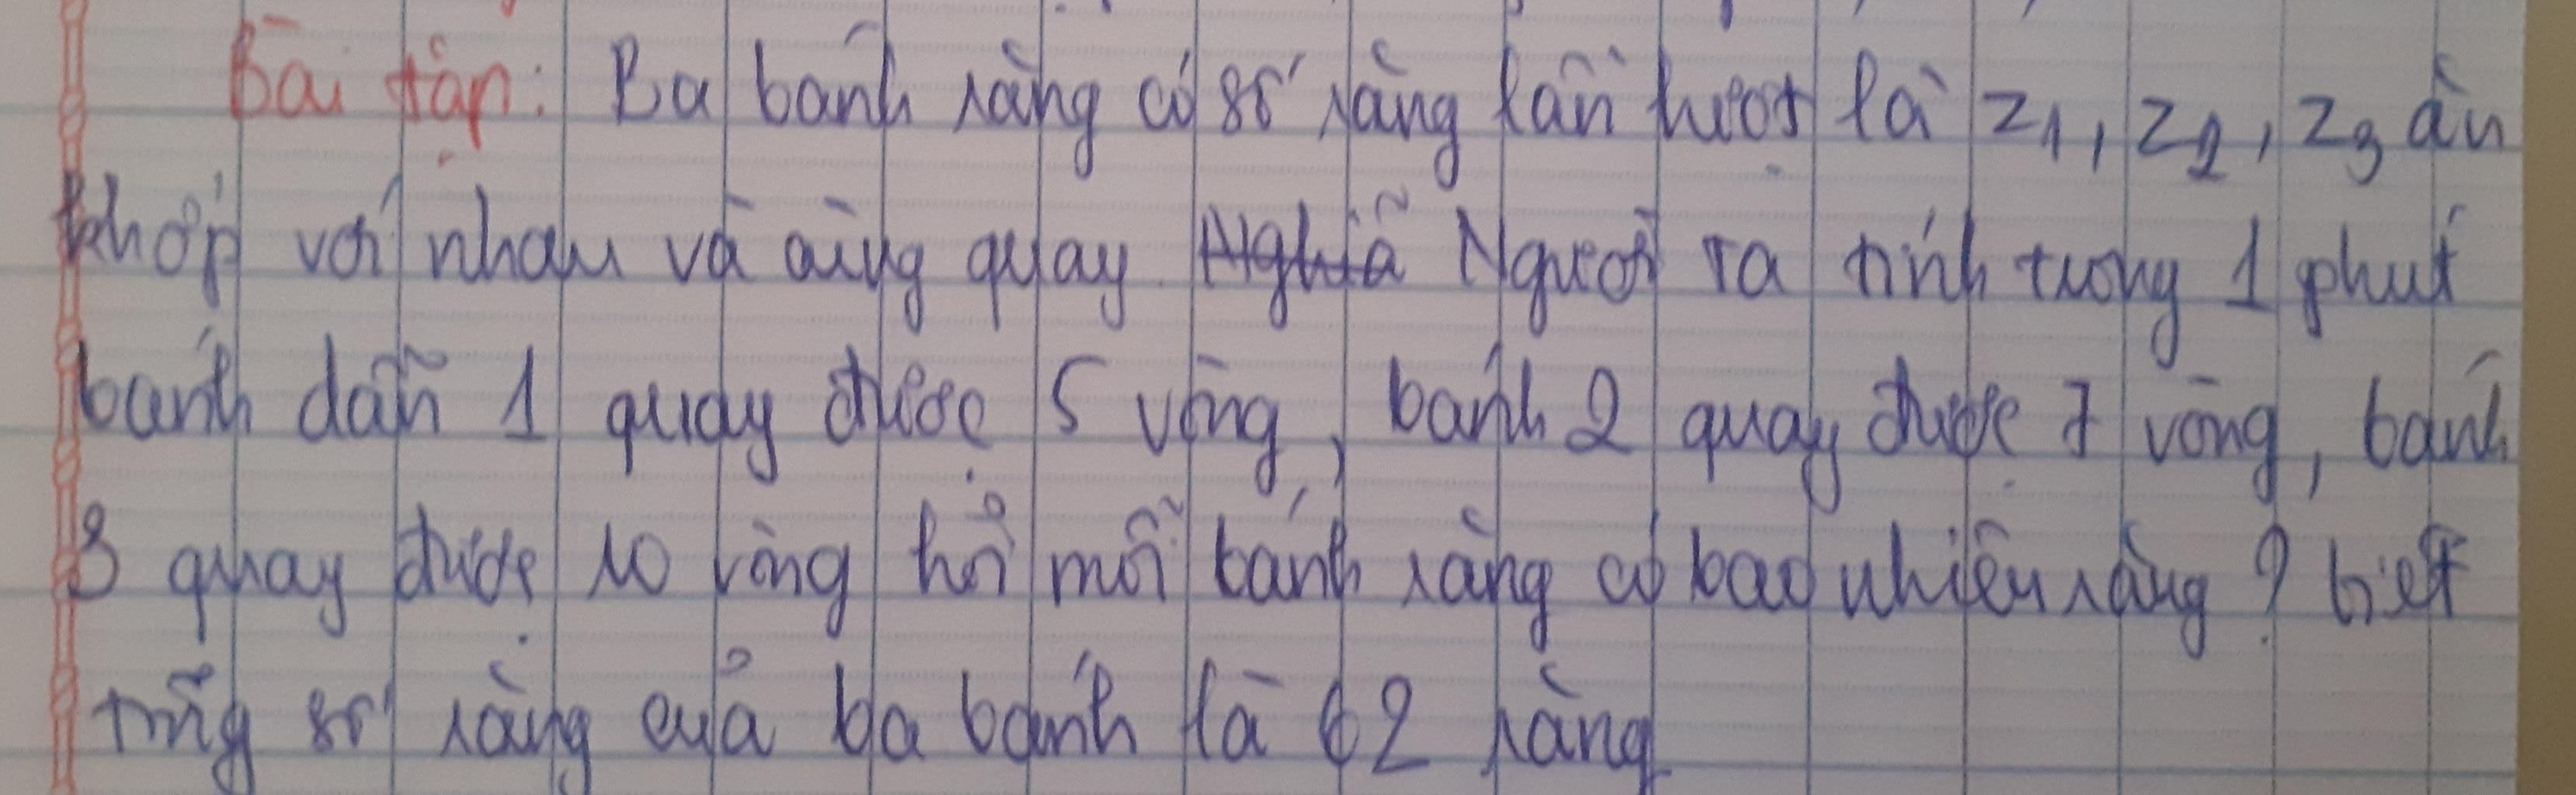 Bài tập: Ba bánh răng có số răng lần lượt là z1, z2, z3 ăn
khớp với nhau và cùng quay. Nghĩa Người ta tính trong 1 phút
bánh dẫn 1 quay được 5 vòng, bánh 2 quay được 7 vòng, bánh
3 quay được 10 vòng hỏi mỗi bánh răng có bao nhiêu răng? biết
tổng số răng của ba bánh là 62 răng